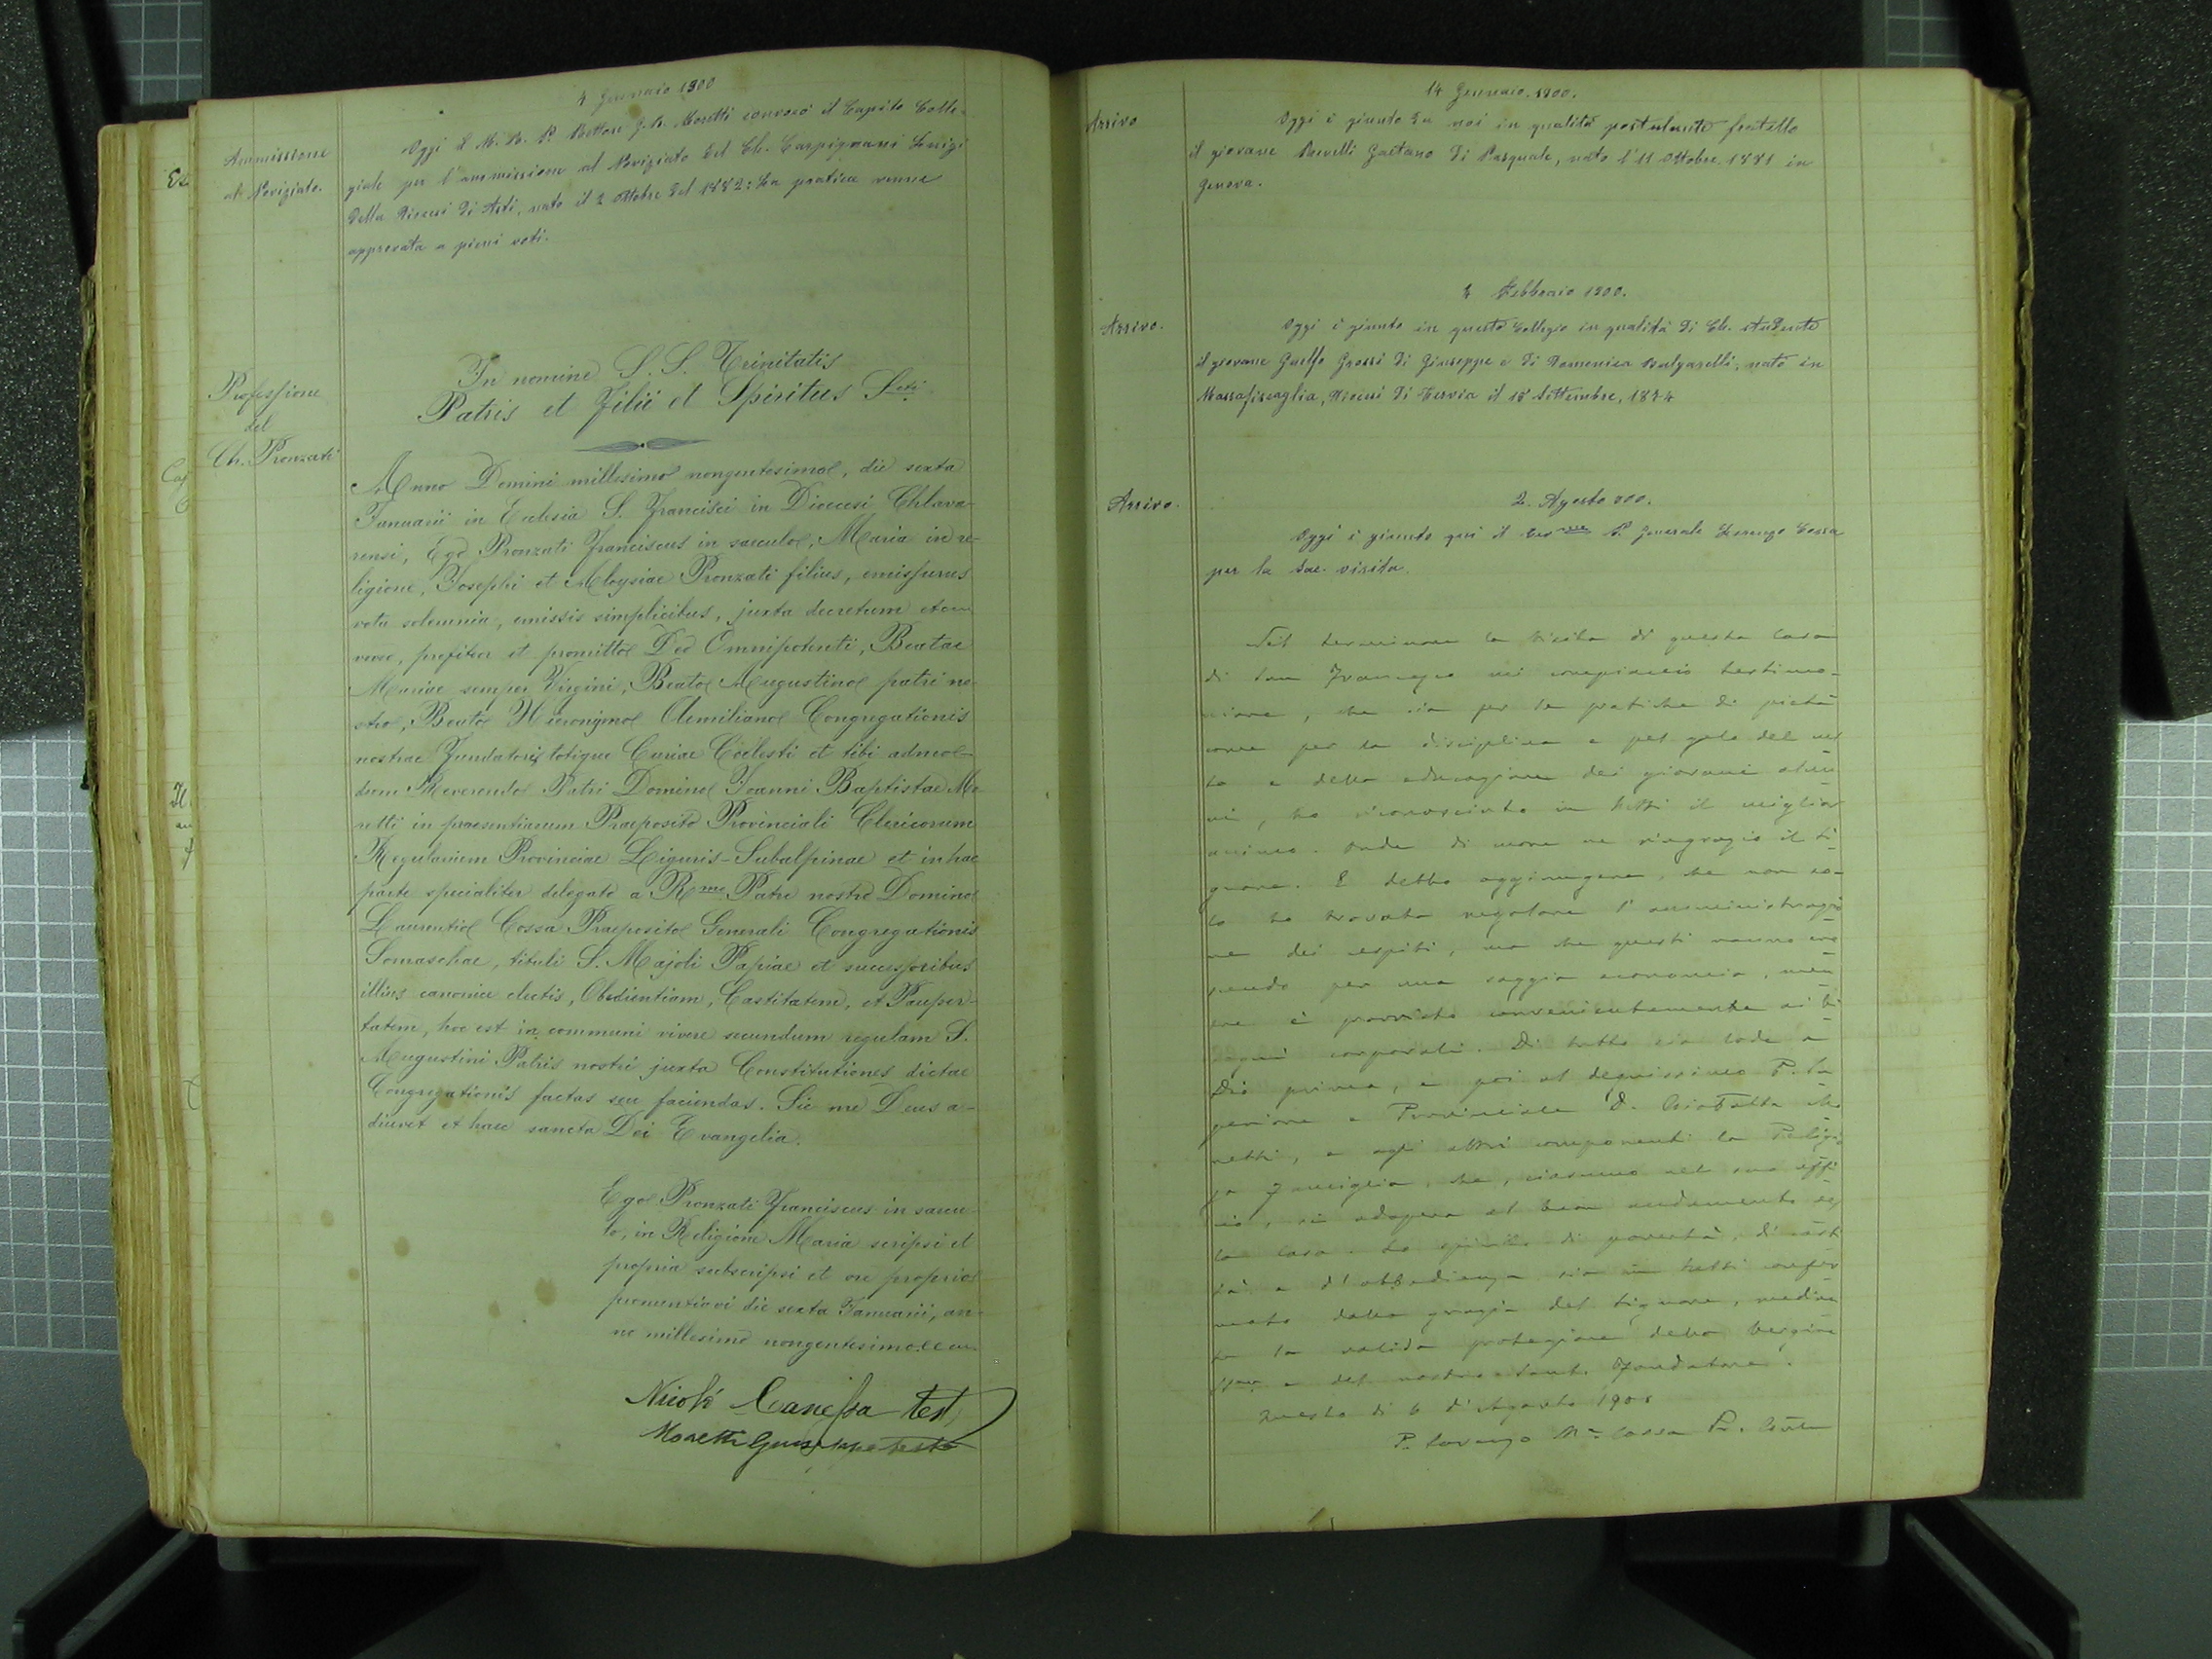 4 Gennaio 1900
Ammissione
al Noviziato.
Oggi il M. R. P. Rettore G. B. Moretti convocò il Capitolo Colle-
giale per l'ammissione al Noviziato del Ch. Carpignani Luigi
della Diocesi di Asti, nato il 2 Ottobre del 1882: La pratica venne
approvata a pieni voti.
Professione
del
Ch. Pronzati
In nomine S. S. Trinitatis
Patris et Filii et Spiritus Scti
Anno Domini millesimo nongentesimo, die sexta
Januarii in Ecclesia S. Francisci in Diocesi Chlava-
rensi, Ego Pronzati Franciscus in saeculo, Maria in re-
ligione, Josephi et Aloysiae Pronzati filius, emissurus
vota solemnia, emissis simplicibus, juxta decretum
profiteor et promitto Deo Omnipotenti, Beatae
Mariae semper Virgini, Beato Augustino patri no-
stro, Beato Hieronymo Aemiliano Congregationis
nostrae Fundatori, totique Curiae Coelesti et tibi admo-
dum Reverendo Patri Domino Joanni Baptistae Mo-
retti in praesentiarum Praeposito Provinciali Clericorum
Regularium Provinciae Liguris-Subalpinae et in hac
parte specialiter delegato a Rmo Patre nostro Domino
Laurentio Cossa Praeposito Generali Congregationis
Somaschae, tituli S. Majoli Papiae et successoribus
illius canonice electis, Obedientiam, Castitatem, et Pauper-
tatem, hoc est in communi vivere secundum regulam S.
Augustini Patris nostri juxta Constitutiones dictae
Congregationis factas seu faciendas. Sic me Deus a-
diuvet et haec sancta Dei Evangelia.
Ego Pronzati Franciscus in saecu-
lo, in Religione Maria scripsi et
propria subscripsi et ore proprio
pronuntiavi die sexta Januarii, an-
no millesimo nongentesimo
Nicolò Canessa test
Moretti Giuseppe teste
14 Gennaio. 1900.
Arrivo
Oggi è giunto da noi in qualità postulante fratello
il giovane Gaetano di Pasquale, nato l'11 Ottobre 1881 in
Genova.
Febbraio 1900.
Arrivo.
Oggi è giunto in questo Collegio in qualità di Ch. studente
il giovane Guelfo Grossi di Giuseppe e di Domenica Bulgarelli, nato in
Massafiscaglia, Diocesi di Cervia il 18 Settembre, 1874
2. Agosto 900.
Arrivo.
Oggi è giunto qui il Revmo P. Generale Lorenzo Cossa
per la Sac. visita.
Nel terminare la Visita di questa Casa
di San Francesco mi compiaccio testimo-
niare, che sia per le pratiche di pietà
come per la disciplina e pel zelo del
e della educazione dei giovani alun
ni, ho riconosciuto in tutti il miglior
animo. Onde di cuore ne ringrazio il Si
gnore. E debbo aggiungere, che non so-
lo ho trovata regolare l'amministrazio
ne dei ma che questi vanno
per una saggia economia, men
tre è provvisto convenientemente ai bi
sogni corporali. Di tutto sia lode a
Dio prima, e poi al degnissimo P. Su
periore e Provinciale D. Giobatta Mo
retti, e agli altri componenti la Religio
sa Famiglia, che, ciascuno nel suo uffi
cio, si adopera al buon andamento del
la Casa. Lo spirito di povertà, di casti
tà e d'obbedienza sia in tutti
dalla grazia del Signore, media
te la valida protezione della Vergine
SSma e del nostro Santo Fondatore.
Questo dì 6 d'Agosto 1900
P. Lorenzo Ma Cossa